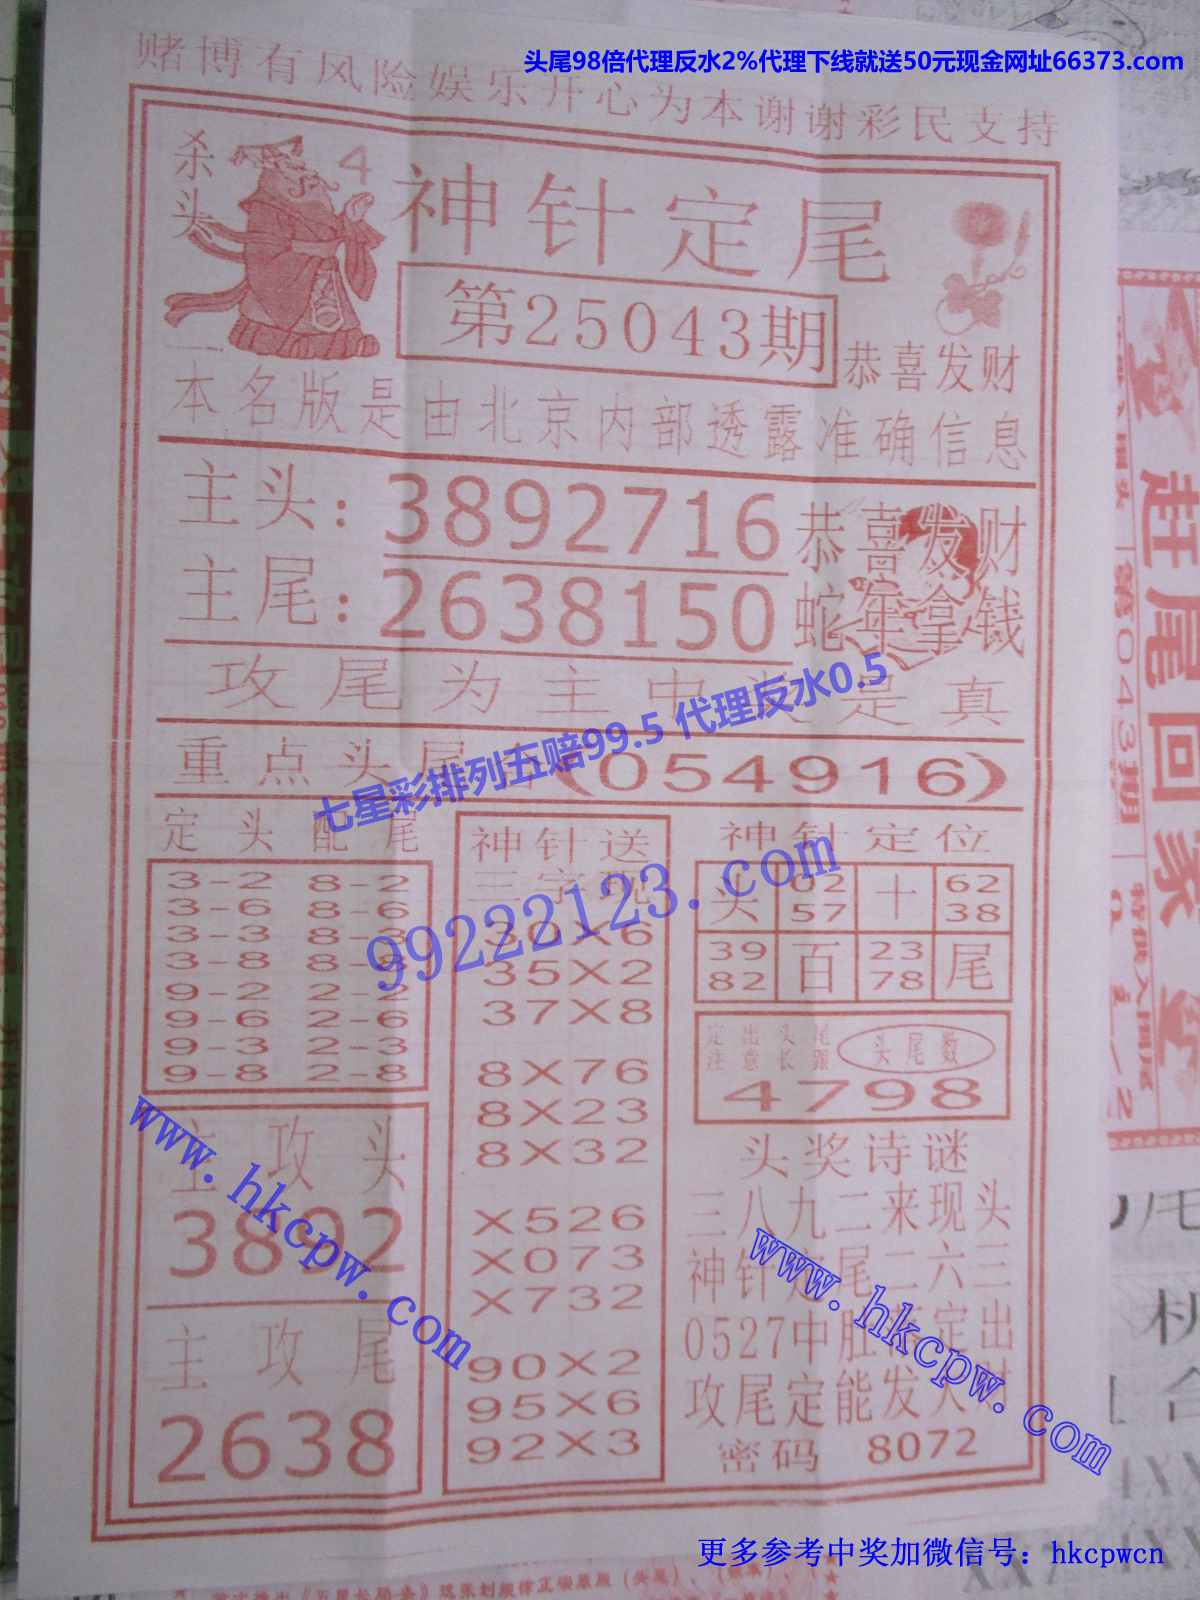 头尾98倍代理反水2%代理下线就送50元现金网址66373.com
赌博有风险娱乐开心为本谢谢彩民支持
杀头
4
神针定尾
第25043期
恭喜发财
本名版是由北京内部透露准确信息
主头：3892716
主尾：2638150
恭喜发财
蛇年拿钱
攻尾为主中奖是真
重点头尾
(054916)
七星彩排列五赔99.5 代理反水0.5
99222123.com
定头配尾
3-2 8-2
3-6 8-6
3-3 8-3
3-8 8-8
9-2 2-2
9-6 2-6
9-3 2-3
9-8 2-8
主攻头
3892
主攻尾
2638
神针送
三字现
30X6
35X2
37X8
8X76
8X23
8X32
X526
X073
X732
90X2
95X6
92X3
神针定位
头 02 57 十 62 38
39 82 百 23 78 尾
定出头尾
注意长跟
头尾数
4798
头奖诗谜
三八九二来现头
神针定尾二六三
0527中肚 定出
攻尾定能发大财
密码 8072
www.hkcpw.com
www.hkcpw.com
更多参考中奖加微信号：hkcpwcn
赶尾回家
第043期